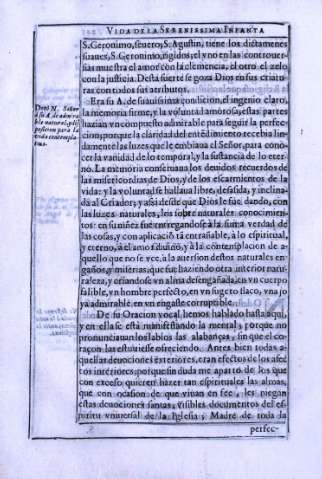 VIDA DE LA SERENISSIMA INFANTA
S. Geronimo, seuero, S. Agustin, tiene los dictamenes
suaues, S. Geronimo, rigidos; el vno en las controuer-
sias muestra el amor con la clemencia, el otro el zelo
con la justicia. Desta suerte se goza Dios en sus criatu-
ras con todos sus atributos.
Era su A. de suauissima condicion, el ingenio claro,
la memoria firme, y la voluntad amorosa; estas partes
hazian vn compuesto admirable para seguir la perfec-
cion; porque la claridad del entẽdimiento recebia linda-
mente las luzes que le embiaua el Señor, para cono-
cer la vanidad de lo temporal, y la sustancia de lo eter-
no. La memoria conseruaua los deuidos recuerdos de
las misericordias de Dios, y de los escarmientos de la
vida: y la voluntad se hallaua libre, desasida, y inclina-
da al Criador; y assi desde que Dios le fue dando, con
las luzes naturales, las sobrenaturales conocimien-
tos: en su niñez fue entregandose à la suma verdad de
las cosas, y con aplicaciõ tã entrañable, à lo espiritual,
y eterno, à el amor diuino, y à la contemplacion de a-
quello que no se vee, à la auersion destos naturales en-
gaños, y miserias, que fue haziendo otra interior natura-
leza, y criandose vn alma desengañada en vn cuerpo
falible, vn hombre perfecto, en vn sugeto flaco, vna jo-
ya admirable en vn engaste corruptible.
De su Oracion vocal hemos hablado hasta aqui,
y en ella se està manifestando la mental; porque no
pronunciauan los labios las alabanças, sin que el co-
raçon las estuuiesse ofreciendo. Antes bien todas a-
quellas deuociones exteriores, eran efectos de los afec-
tos interiores, porque sin duda me aparto de los que
con excesso quieren hazer tan espirituales las almas,
que con ocasion de que viuan en fee, les niegan
estas deuociones santas, visibles documentos del es-
piritu vniuersal de la Iglesia; Madre de toda la
perfec-
Dotò N. Señor
à su A. de admira-
ble natural, y dis-
posicion para la
vida contempla-
tiua.